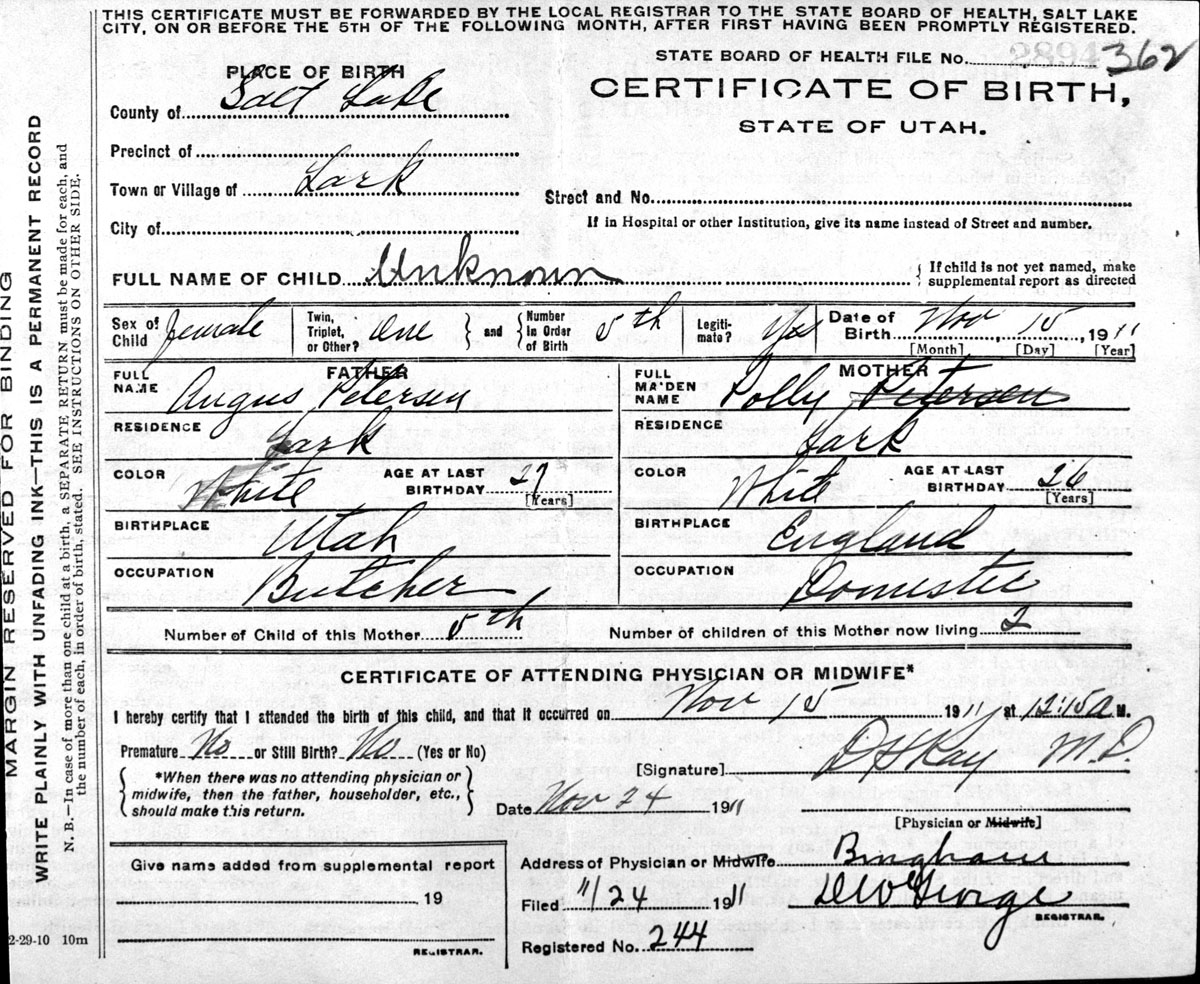 THIS CERTIFICATE MUST BE FORWARDED BY THE LOCAL REGISTRAR TO THE STATE BOARD OF HEALTH, SALT LAKE
CITY, ON OR BEFORE THE 5TH OF THE FOLLOWING MONTH, AFTER FIRST HAVING BEEN PROMPTLY REGISTERED.
STATE BOARD OF HEALTH FILE No. 2894 362
PLACE OF BIRTH
CERTIFICATE OF BIRTH,
STATE OF UTAH.
County of Salt Lake
Precinct of
Town or Village of Lark
Street and No.
City of
If in Hospital or other Institution, give its name instead of Street and number.
FULL NAME OF CHILD Unknown
If child is not yet named, make
supplemental report as directed
Sex of Child Female
Twin, Triplet, or Other? One
and
Number In Order of Birth 5th
Legiti-mate? Yes
Date of Birth Nov 15, 1911
[Month] [Day] [Year]
FATHER
FULL NAME Angus Petersen
RESIDENCE Lark
COLOR White
AGE AT LAST BIRTHDAY 27
[Years]
BIRTHPLACE Utah
OCCUPATION Butcher
MOTHER
FULL MAIDEN NAME Polly Petersen
RESIDENCE Lark
COLOR White
AGE AT LAST BIRTHDAY 26
[Years]
BIRTHPLACE England
OCCUPATION Domestic
Number of Child of this Mother 5th
Number of children of this Mother now living 2
CERTIFICATE OF ATTENDING PHYSICIAN OR MIDWIFE*
I hereby certify that I attended the birth of this child, and that it occurred on Nov 15 1911 at 12:15a M.
Premature No or Still Birth? No (Yes or No)
*When there was no attending physician or
midwife, then the father, householder, etc.,
should make this return.
[Signature] Ray M.D.
Date Nov 24 1911
[Physician or Midwife]
Give name added from supplemental report
19
REGISTRAR.
Address of Physician or Midwife Bingham
Filed 11/24 1911 George
REGISTRAR.
Registered No. 244
2-29-10 10m
MARGIN RESERVED FOR BINDING
WRITE PLAINLY WITH UNFADING INK—THIS IS A PERMANENT RECORD
N. B.—In case of more than one child at a birth, a SEPARATE RETURN must be made for each, and
the number of each, in order of birth, stated. SEE INSTRUCTIONS ON OTHER SIDE.